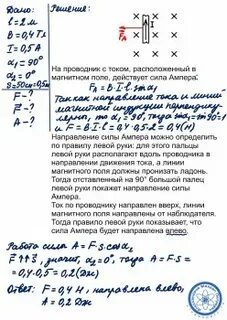 Дано:
Решение:
l=2 м
B=0,4 Тл
I=0,5 А
α₁=90°
α₂=0°
S=50см=0,5м
F-?
A-?
F_A
I
На проводник с током, расположенный в
магнитном поле, действует сила Ампера:
F_A = B·I·l·sinα₁
Так как направление тока и линии
магнитной индукции перпендику-
лярны, то α₁=90°, тогда sinα₁=sin90°=1
и F=B·I·l=0,4·0,5·2=0,4(Н)
Направление силы Ампера можно определить
по правилу левой руки: для этого пальцы
левой руки располагают вдоль проводника в
направлении движения тока, а линии
магнитного поля должны пронизать ладонь.
Тогда отставленный на 90° большой палец
левой руки покажет направление силы
Ампера.
Ток по проводнику направлен вверх, линии
магнитного поля направлены от наблюдателя.
Тогда правило левой руки показывает, что
сила Ампера будет направлена влево.
Работа силы A=F·S·cosα₂
F↑↑S, значит, α₂=0°, тогда A=F·S=
=0,4·0,5=0,2(Дж)
Ответ: F=0,4 Н, направлена влево,
A=0,2 Дж